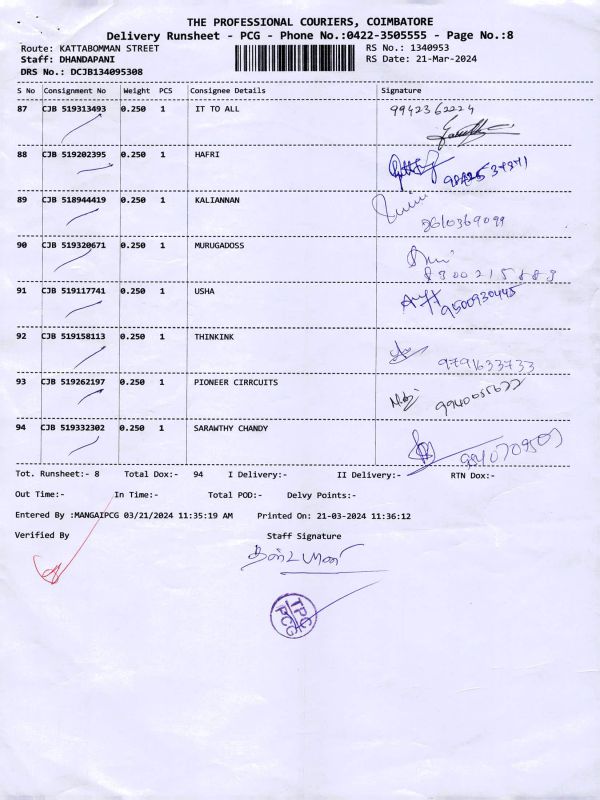 THE PROFESSIONAL COURIERS, COIMBATORE
Delivery Runsheet - PCG - Phone No.:0422-3505555 - Page No.:8
Route: KATTABOMMAN STREET RS No.: 1340953
Staff: DHANDAPANI RS Date: 21-Mar-2024
DRS No.: DCJB134095308
S No Consignment No Weight PCS Consignee Details Signature
87 CJB 519313493 0.250 1 IT TO ALL 9942362224
88 CJB 519202395 0.250 1 HAFRI
89 CJB 518944419 0.250 1 KALIANNAN
90 CJB 519320671 0.250 1 MURUGADOSS
91 CJB 519117741 0.250 1 USHA
9500930445
92 CJB 519158113 0.250 1 THINKINK
9791633733
93 CJB 519262197 0.250 1 PIONEER CIRRCUITS
94 CJB 519332302 0.250 1 SARAWTHY CHANDY
Tot. Runsheet:- 8 Total Dox:- 94 I Delivery:- II Delivery:- RTN Dox:-
Out Time:- In Time:- Total POD:- Delvy Points:-
Entered By :MANGAIPCG 03/21/2024 11:35:19 AM Printed On: 21-03-2024 11:36:12
Verified By Staff Signature
TPC
PCG